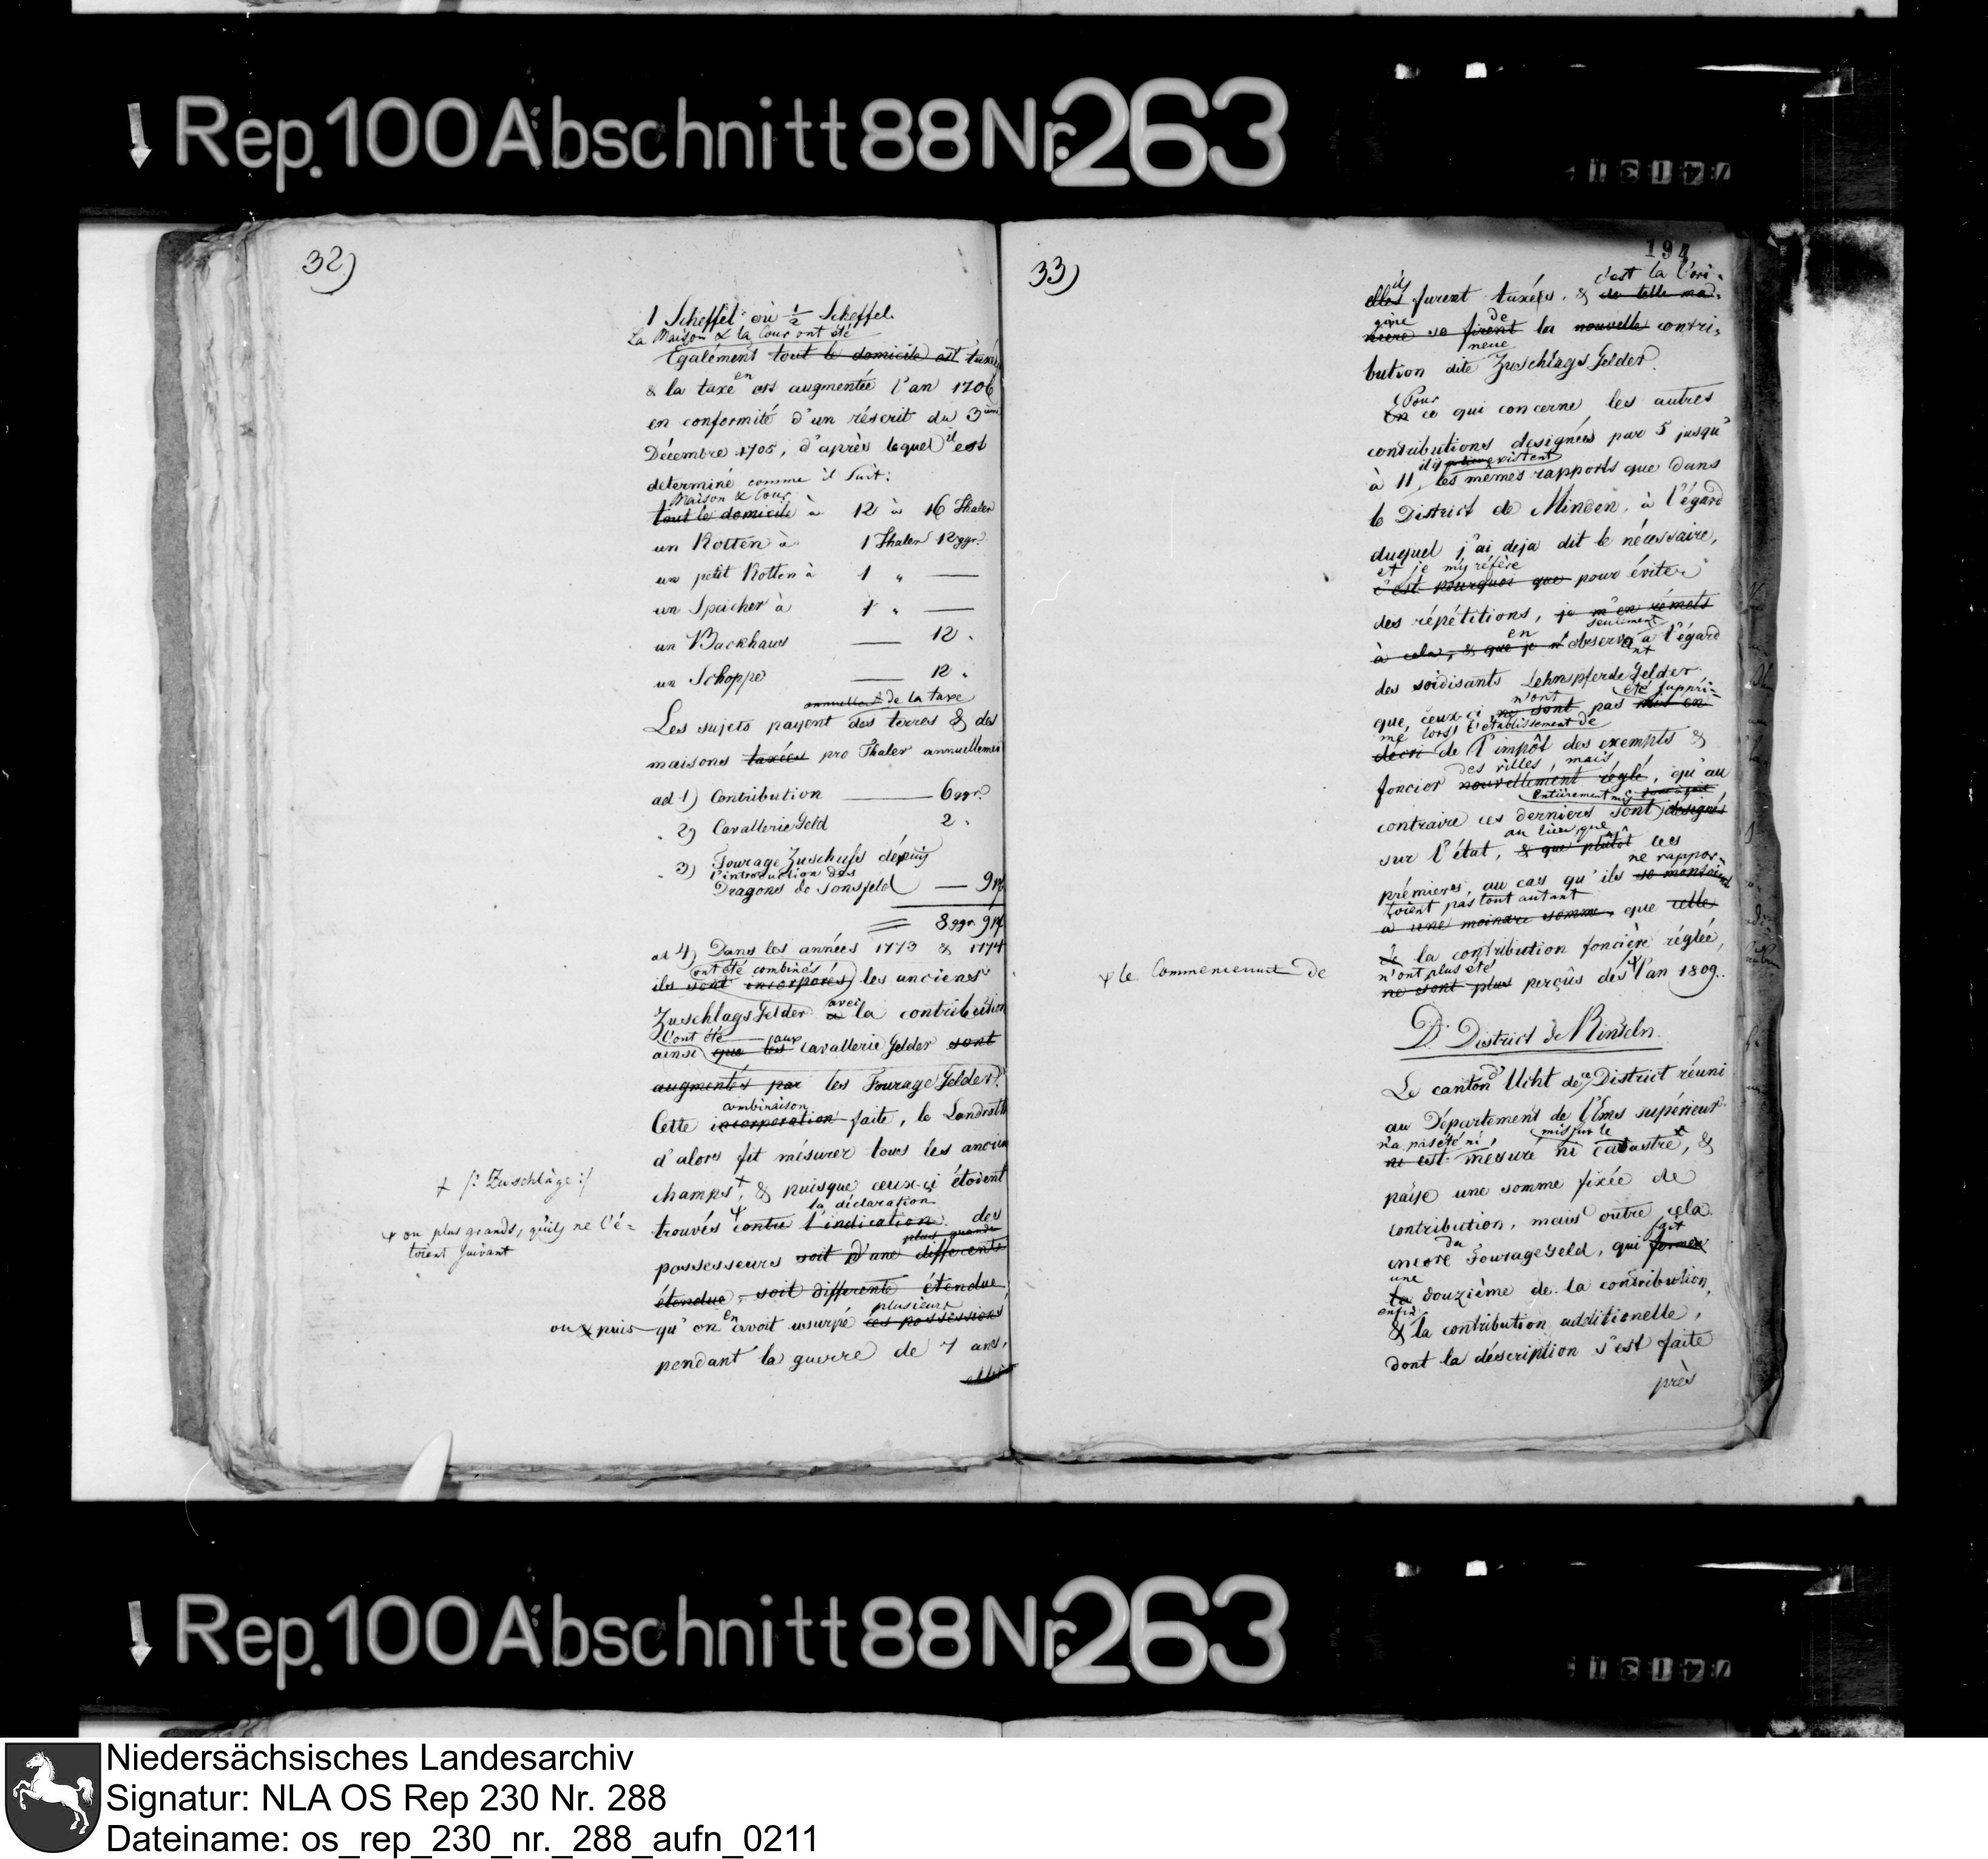 Rep. 100 Abschnitt 88 Nr. 263
32)
1 Scheffel ou ½ Scheffel.
La Maison & la Cour ont été
Egalément tout le domicile est taxé
& la taxe en est augmentée l'an 1706
en conformité d'un réscrit du 3ieme
Décembre 1705, d'après lequel il est
déterminé comme il suit:
Maison & Cour
tout le domicile à 12 à 16 Thaler
un Kotten à 1 Thaler 12 ggr.
un petit Kotten à 1 " —
un Speicher à 1 " —
un Backhaus — 12 "
un Schoppe — 12 "
annuellement de la taxe
Les sujets payent des terres & des
maisons taxées pro Thaler annuellement
ad 1) Contribution — 6 ggr.
" 2) CavallerieGeld 2 "
" 3) Fourage Zuschuss dépuis
l'introduction des
Dragons de Sonsfeld — 9 pf
= 8 ggr. 9 pf
ad 4) Dans les années 1773 & 1774
ont été combinés
ils sont incorporés les anciens
ZuschlagsGelder avec a la contribution
l'ont été aux
ainsi que les CavallerieGelder sont
augmentés par les FourageGelder.
combinaison
Cette incorporation faite, le Landrath
d'alors fit mésurer tous les anciens
+ /: Zuschläge :/
champs +, & puisque ceux-ci étoient
la déclaration
trouvés contre l'indication des
ou plus grands, qu'ils ne l'é-
toient suivant
plus grands
possesseurs soit d'une differente
étendue, soit differente étendue
plusieurs
ou puis qu'on en avoit usurpé ces possessions
pendant la guerre de 7 ans,
elles
33)
194
ils c'est la l'ori-
elles furent taxées, & de telle ma-
gine de
niere se firent la nouvelle contri-
neue
bution dite ZuschlagsGelder.
Pour
En ce qui concerne les autres
contributions designées par 5 jusqu'
existent
à 11, les mêmes rapports que dans
le District de Minden, à l'égard
duquel j'ai deja dit le nécessaire,
et je m'y réfère
c'est pourquoi que pour éviter
des répétitions, je m'en rémets
en seulement
à cela, & que je n'observant à l'égard
des soidisants LehnpferdeGelder
n'ont été suppri-
que, ceux-ci ne sont pas
mé lors l'établissement de
de l'impôt des exempts &
des villes, mais
foncier nouvellement réglé, qu'au
entiérement mis
contraire ces derniers sont designés
au lieu que
sur l'état, & que plutôt les
ne rappor-
prémieres, au cas qu'ils se montoient
toient pas tout autant
a une moindre somme, que celle
de la contribution foncière réglée,
n'ont plus été
ne sont plus perçûs dès l'an 1809.
le Commencement de
D. District de Rinteln.
Le canton d'Ucht de ce District réuni
au Département de l'Ems supérieur
n'a pas été ni, mis sur le
ni est mesuré ni cadastre, &
paye une somme fixée de
contribution, mais outre cela
du fait
encore FourageGeld, qui forme
une
la douzième de la contribution,
enfin
& la contribution additionelle,
dont la déscription s'est faite
près
Rep. 100 Abschnitt 88 Nr. 263
Niedersächsisches Landesarchiv
Signatur: NLA OS Rep 230 Nr. 288
Dateiname: os_rep_230_nr._288_aufn_0211